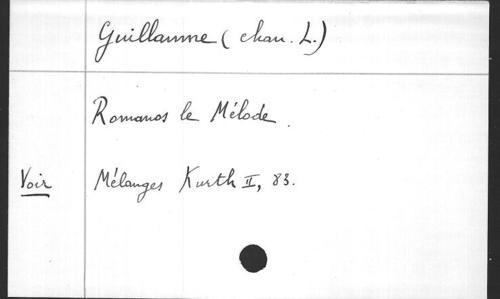 Guillaume (chan. L.)
Romanos le Mélode.
Voir Mélanges Kurth II, 83.